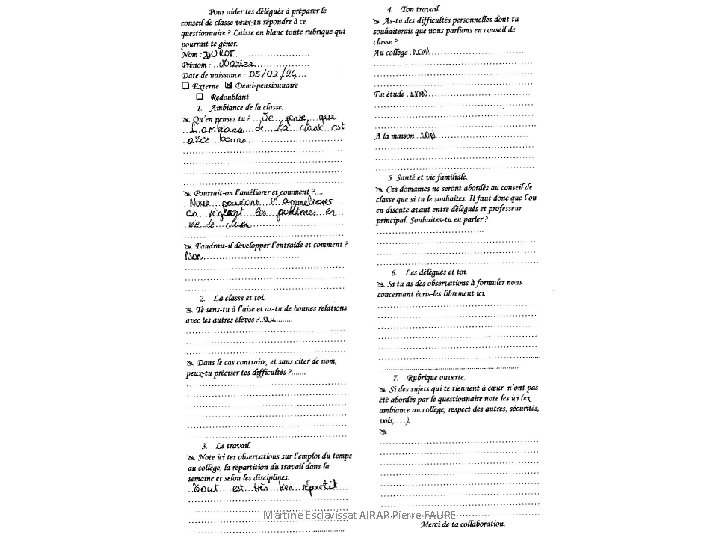 Pour aider tes délégués à préparer le
conseil de classe veux-tu répondre à ce
questionnaire ? Laisse en blanc toute rubrique qui
pourrait te gêner.
Nom :
Prénom :
Date de naissance : 05/02/
Externe Demi-pensionnaire
Redoublant
1. Ambiance de la classe.
Qu'en penses-tu ? Je pense que
l'ambiance de la classe est
bonne
Pourrait-on l'améliorer et comment ?
Nous pouvions l'
en les problèmes en
vie de
Faudrait-il développer l'entraide et comment ?
2. La classe et toi.
Te sens-tu à l'aise et as-tu de bonnes relations
avec les autres élèves ?
Dans le cas contraire, et sans citer de nom,
peux-tu préciser tes difficultés ?
3. Le travail.
Note ici tes observations sur l'emploi du temps
au collège, la répartition du travail dans la
semaine et selon les disciplines.
Tout est très bien répartit
4. Ton travail
As-tu des difficultés personnelles dont tu
souhaiterais que nous parlions en conseil de
classe ?
Au collège NON
En étude NON
A la maison NON
5. Santé et vie familiale.
Ces domaines ne seront abordés au conseil de
classe que si tu le souhaites. Il faut donc que l'on
en discute avant entre délégués et professeur
principal. Souhaites-tu en parler ?
6. Les délégués et toi.
Si tu as des observations à formuler nous
concernant écris-les librement ici.
7. Rubrique ouverte.
Si des sujets qui te tiennent à cœur n'ont pas
été abordés par le questionnaire note les ici (ex
ambiance au collège, respect des autres, sécurités,
vols, ...).
Merci de ta collaboration.
Martine Esclavissat AIRAP Pierre FAURE